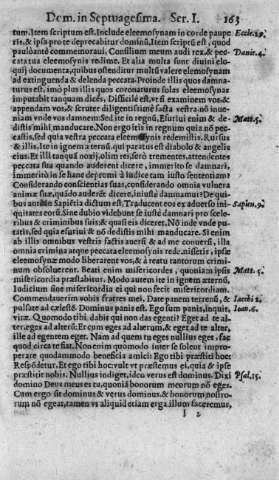 Dom. in Septuagesima. Ser. I. 163
tum. Item scriptum est. Include eleemosynam in corde paupe Eccle. 29.
ris, & ipsa pro te deprecabitur dominũ, Item scripsi est, quod
paulo ante commemoraui. Consilium meum audi rex, & pec- Danie. 4.
catatua eleemosynis redime. Et alia multa sunt diuini elo-
quij documenta, quibus ostenditur multũ valere eleemosynam
ad extinguenda & delenda peccata. Proinde illis quos damna-
turus est, imò plus illis quos coronaturus solas eleemosynas
imputabit tanquam dices, Difficile est, vt si examinem vos &
appendam vos, & scruter diligentissimè facta vestra, nõ inue-
niam vnde vos damnem. Sed ite in regnũ, Esuriui enim & de- Matt. 5.
distis mihi manducare. Non ergo itis in regnum quia nõ pec-
castis, sed quia vestra peccata eleemosynis redemistis. Rursus
& illis, Ite in ignem æternũ, qui paratus est diabolo & angelis
eius. Et illi tanquã noxij, olim rei, serò trementes, attendentes
peccata sua quando auderent dicere, immerito se damnari,
immeritò in se hanc depromi à iudice tam iusto sententiam?
Considerando conscientias suas, considerando omnia vulnera
animæ suæ, quãdo auderẽt dicere, iniustè damnamur? De qui-
bus antè in Sapiẽtia dictum est, Traducent eos ex aduerso ini- Sapien. 5.
quitates eorũ. Sine dubio videbunt se iustè damnari pro scele-
ribus & criminibus suis, quasi diceret eis, Nõ inde vnde pu-
tatis, sed quia esuriui & nõ dedistis mihi manducare. Si enim
ab illis omnibus vestris factis auersi & ad me conuersi, illa
omnia crimina atque peccata eleemosynis redemissetis, ipsæ
eleemosynæ modo liberarent vos, & à reatu tantorum crimi-
num absoluerent. Beati enim misericordes, quoniam ipsis Matt. 5.
misericordia præstabitur. Modo autem ite in ignem æternũ,
Iudicium sine misericordia ei qui non fecit misericordiam.
Commendauerim vobis fratres mei, Date panem terrenũ, & Iacobi 2.
pulsate ad cælestẽ. Dominus panis est. Ego sum panis, inquit, Ioan. 6.
vitæ. Quomodo tibi dabit qui non das egenti? Eget ad te al-
ter, eges ad alterũ. Et cum eges ad alterum, & eget ad te alter,
ille ad egentem eget. Nam ad quem tu eges nullius eget, fac
quod circa te fiat. Non enim quomodo inter se solent impro-
perare quodammodo beneficia amici: Ego tibi præstiti hoc:
Respõdetur, Et ego tibi hoc: vult vt præstemus ei, quia & ipse
præstitit nobis. Nullius indiget, ideo verus est dominus. Dixi
domino Deus meus es tu, quoniã bonorum meorum nõ eges. Psal. 15.
Cum ergo sit dominus & verus dominus, & bonorum nostro-
rum nõ egeat, tamen vt aliquid etiam erga illum faceremus,